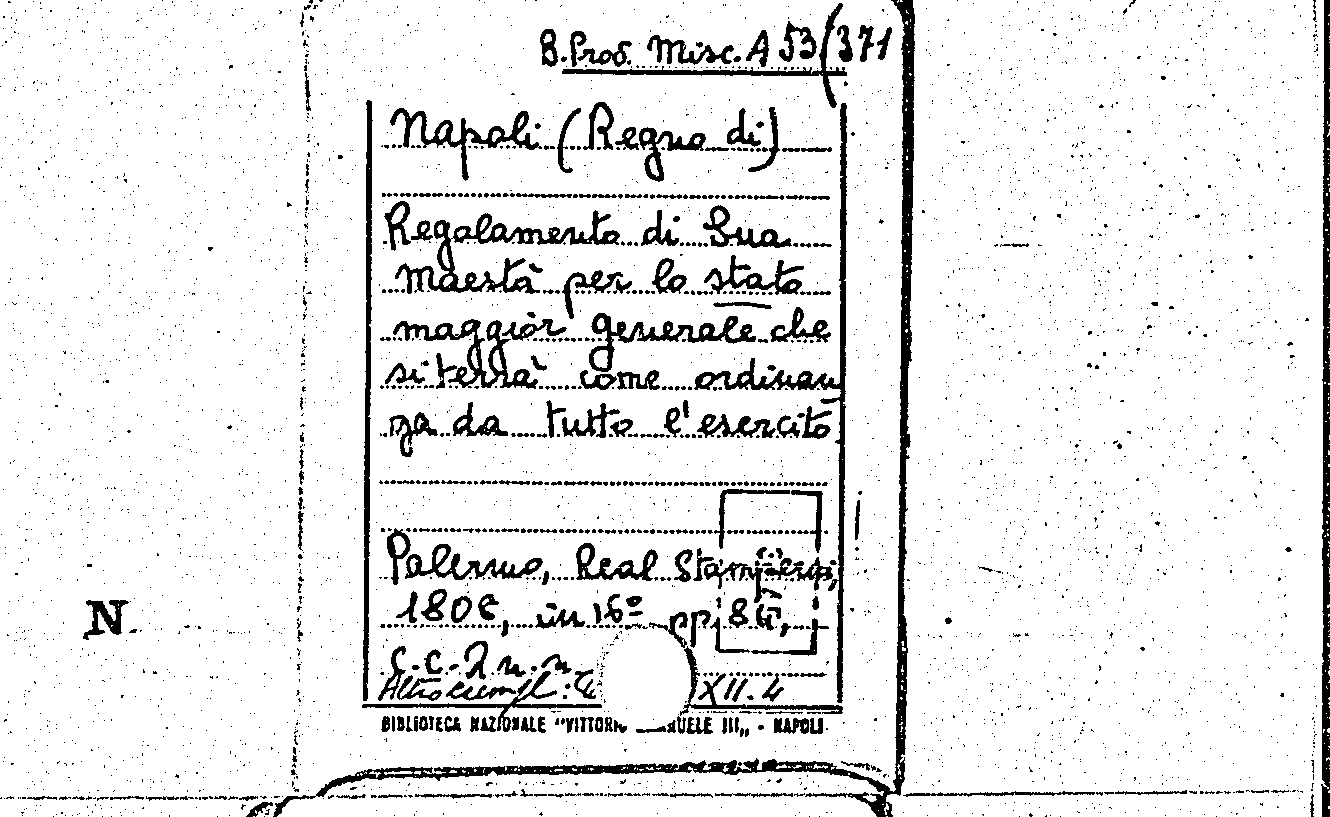 B. Prov. Misc. A 53(371
Napoli (Regno di)
Regolamento di Sua
Maestà per lo stato
maggior generale che
si terrà come ordinan
za da tutto l'esercito
Palermo, Real Stamperia,
1808, in 16º pp. 87,
c.c. 2 n.n.
Altro esempl: XII.4
BIBLIOTECA NAZIONALE "VITTORIO EMANUELE III„ - NAPOLI
N